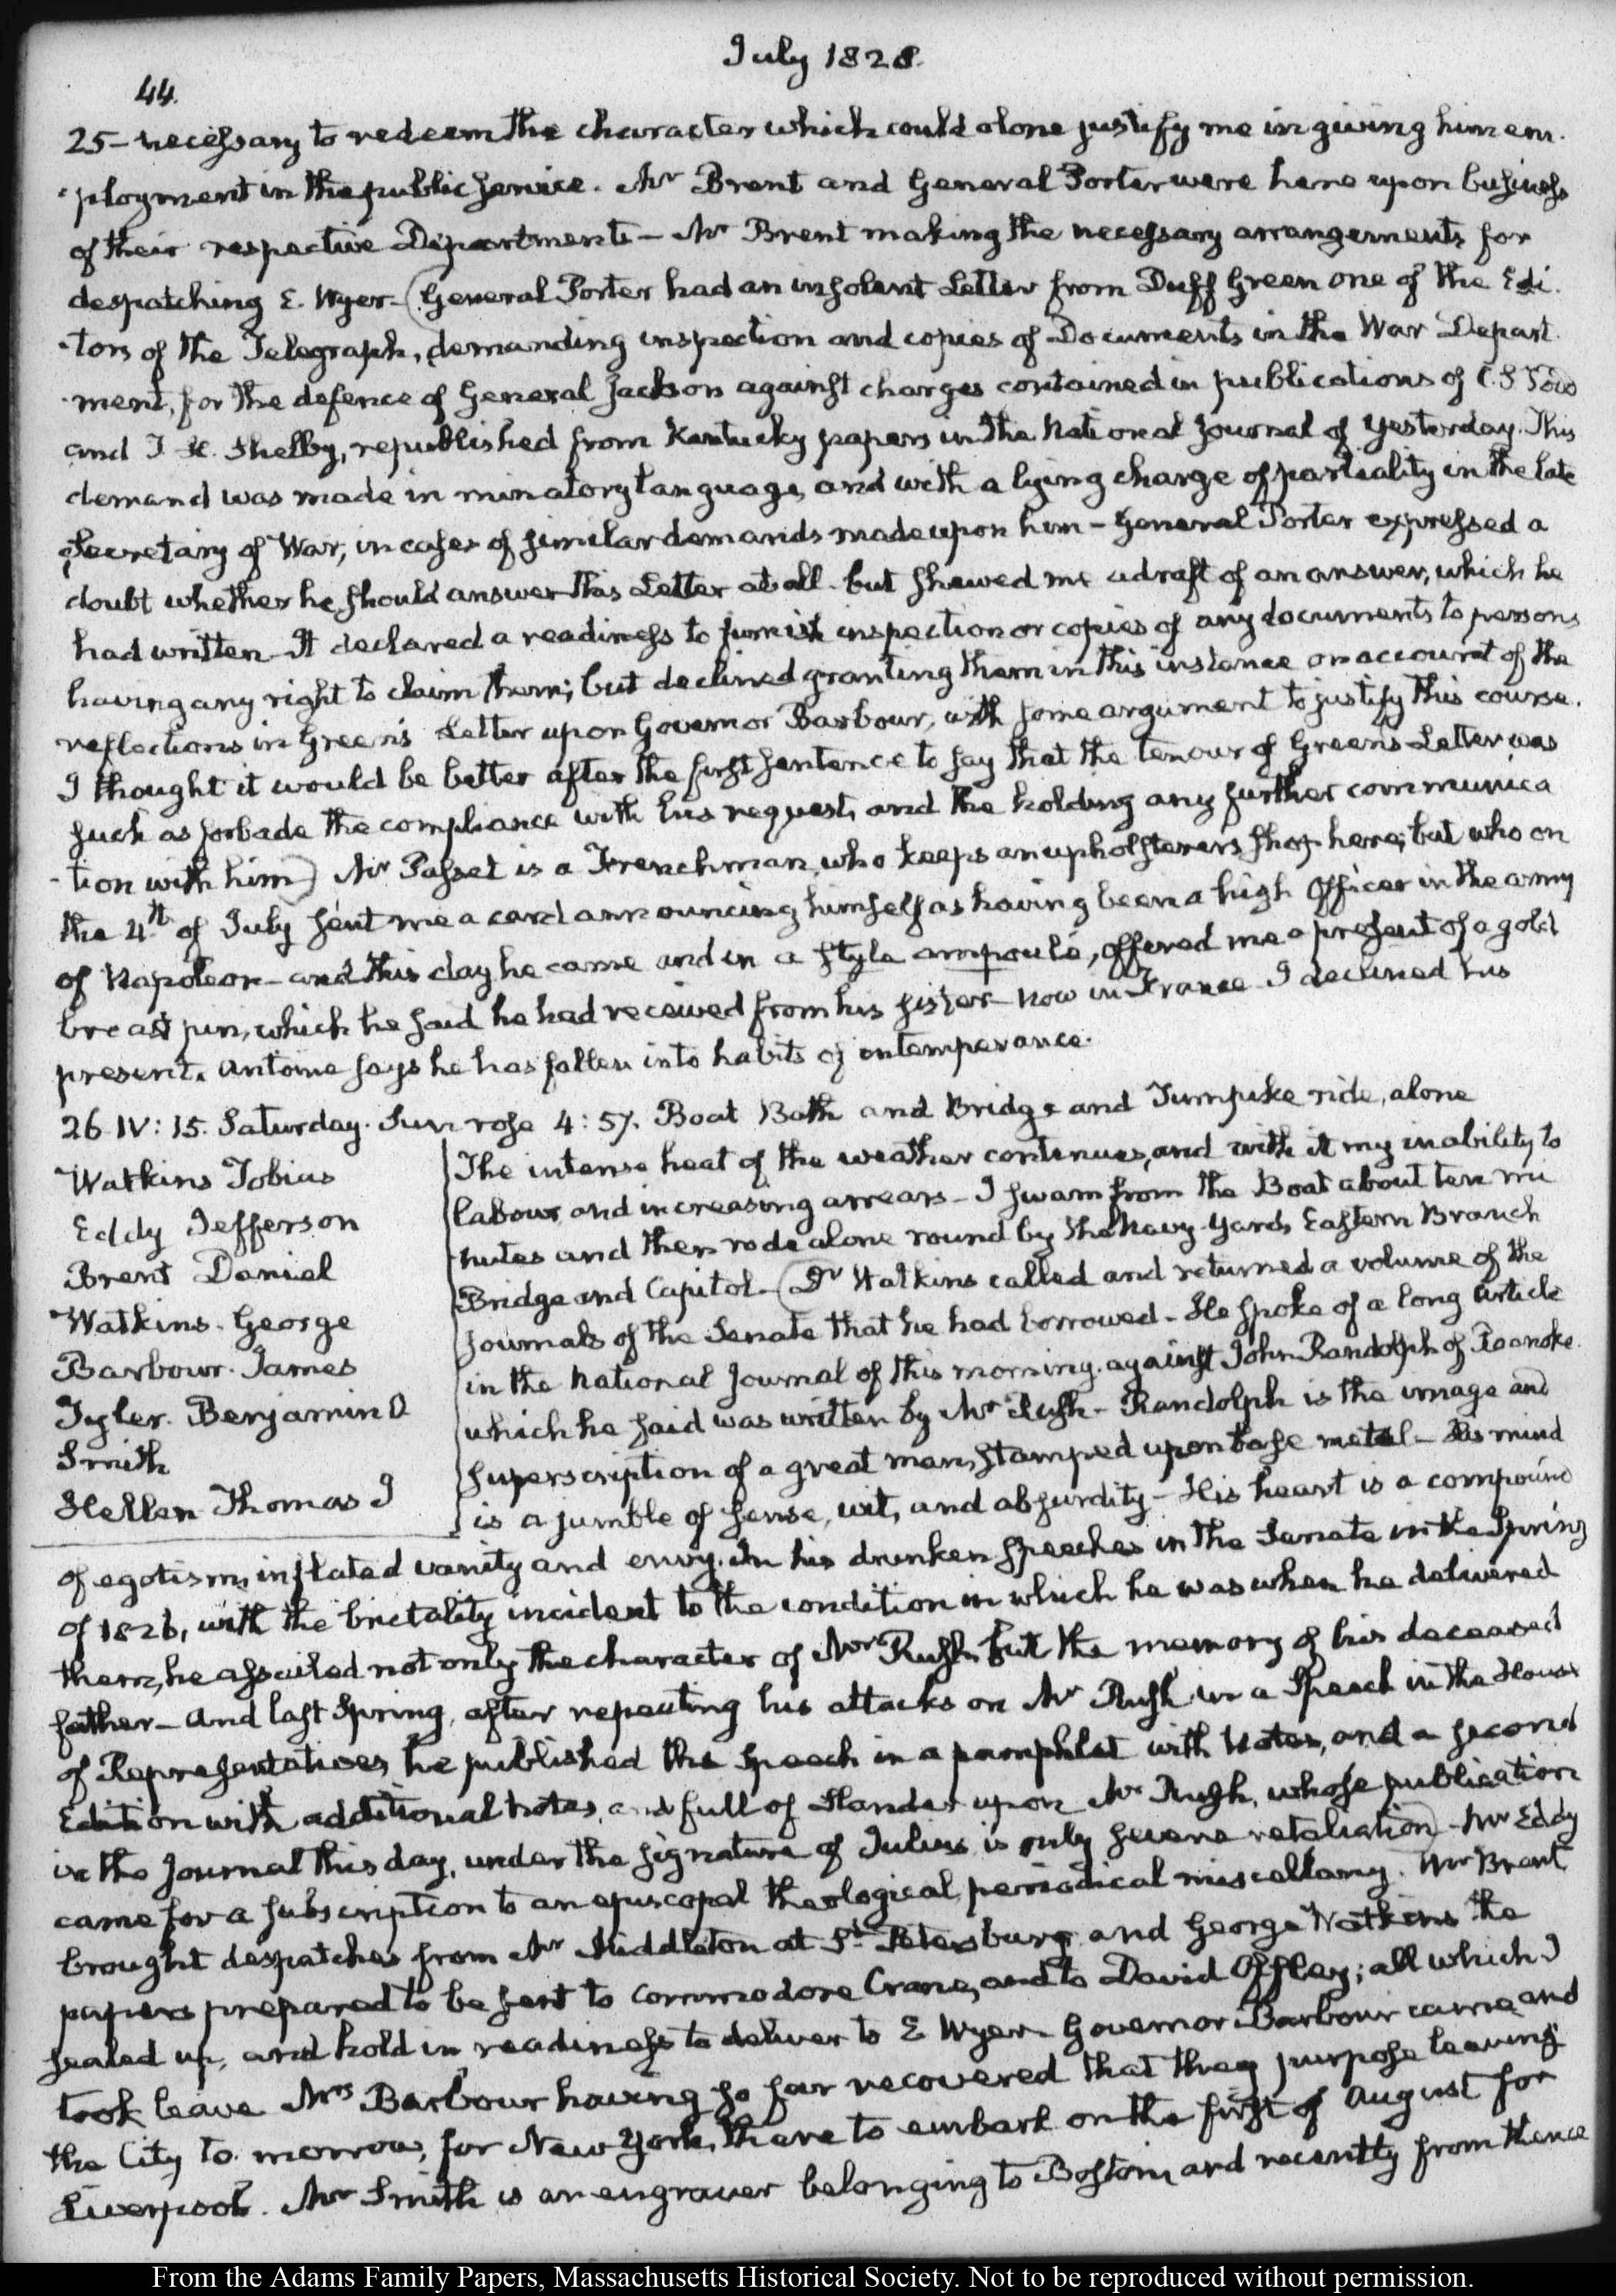 July 1828.
44.
25- necessary to redeem the character which could alone justify me in giving him em-
-ployment in the public service. Mr Brent and General Porter were here upon business
of their respective Departments- Mr Brent making the necessary arrangements for
despatching E. Wyer- (General Porter had an insolent Letter from Duff Green one of the Edi-
-tors of the Telegraph, demanding inspection and copies of Documents in the War Depart-
-ment, for the defence of General Jackson against charges contained in publications of C. S Todd
and I. H. Shelby, republished from Kentucky papers in the National Journal of yesterday. This
demand was made in minatory language, and with a lying charge of partiality in the late
Secretary of War, in cases of similar demands made upon him- General Porter expressed a
doubt whether he should answer this Letter at all- but shewed me a draft of an answer, which he
had written- It declared a readiness to furnish inspection or copies of any documents to persons
having any right to claim them; but declined granting them in this instance on account of the
reflections in Green's Letter upon Governor Barbour, with some argument to justify this course.
I thought it would be better after the first sentence to say that the tenour of Green's Letter was
such as forbade the compliance with his request, and the holding any further communica
-tion with him) Mr Passet is a Frenchman, who keeps an upholsterer's shop here; but who on
the 4th of July sent me a card announcing himself as having been a high Officer in the army
of Napoleon- and this day he came and in a style ampoulé, offered me a present of a gold
breast pin, which he said he had received from his sister- now in France- I declined his
present. Antoine says he has fallen into habits of intemperance.
26. IV: 15. Saturday. Sun rose 4: 57. Boat Bath and Bridge and Turnpike ride, alone
Watkins Tobias
Eddy Jefferson
Brent Daniel
Watkins. George
Barbour. James
Tyler. Benjamin O
Smith
Hellen Thomas J
The intense heat of the weather continues, and with it my inability to
labour, and increasing arrears- I swam from the Boat about ten mi
nutes and then rode alone round by the Navy-Yard, Eastern Branch
Bridge and Capitol- (Dr Watkins called and returned a volume of the
Journals of the Senate that he had borrowed- He spoke of a long Article
in the National Journal of this morning, against John Randolph of Roanoke.
which he said was written by Mr Rush- Randolph is the image and
superscription of a great man, stamped upon base metal- His mind
is a jumble of sense, wit, and absurdity- His heart is a compound
of egotism, inflated vanity and envy. In his drunken speeches in the Senate in the Spring
of 1826, with the brutality incident to the condition in which he was when he delivered
them, he assailed not only the character of Mr Rush but the memory of his deceased
father- And last Spring, after repeating his attacks on Mr Rush in a Speech in the House
of Representatives, he published the speech in a pamphlet with Notes, and a second
Edition with additional notes, and full of Slander upon Mr Rush, whose publication
in the Journal this day, under the signature of Julius, is only severe retaliation)- Mr Eddy
came for a subscription to an episcopal theological, periodical miscellany. Mr Brent
brought despatches from Mr Middleton at St Petersburg and George Watkins the
papers prepared to be sent to Commodore Crane, and to David Offley; all which I
sealed up, and hold in readiness to deliver to E Wyer- Governor Barbour came, and
took leave Mrs Barbour having so far recovered that they purpose leaving
the City to-morrow, for New York, there to embark on the first of August for
Liverpool. Mr Smith is an engraver belonging to Boston, and recently from thence
From the Adams Family Papers, Massachusetts Historical Society. Not to be reproduced without permission.